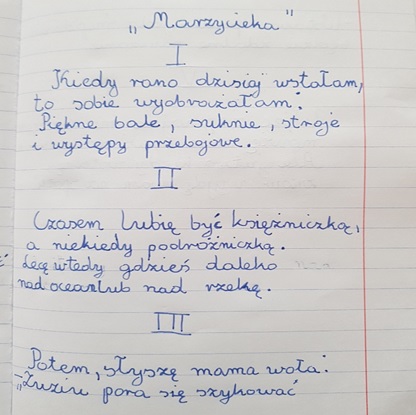 „Marzycielka"
I
Kiedy rano dzisiaj wstałam,
to sobie wyobrażałam:
Piękne bale, suknie, stroje
i występy przebojowe.
II
Czasem lubię być księżniczką,
a niekiedy podróżniczką.
Lecę wtedy gdzieś daleko
nad ocean lub nad rzekę.
III
Potem, słyszę mama woła:
„Zuziu pora się szykować